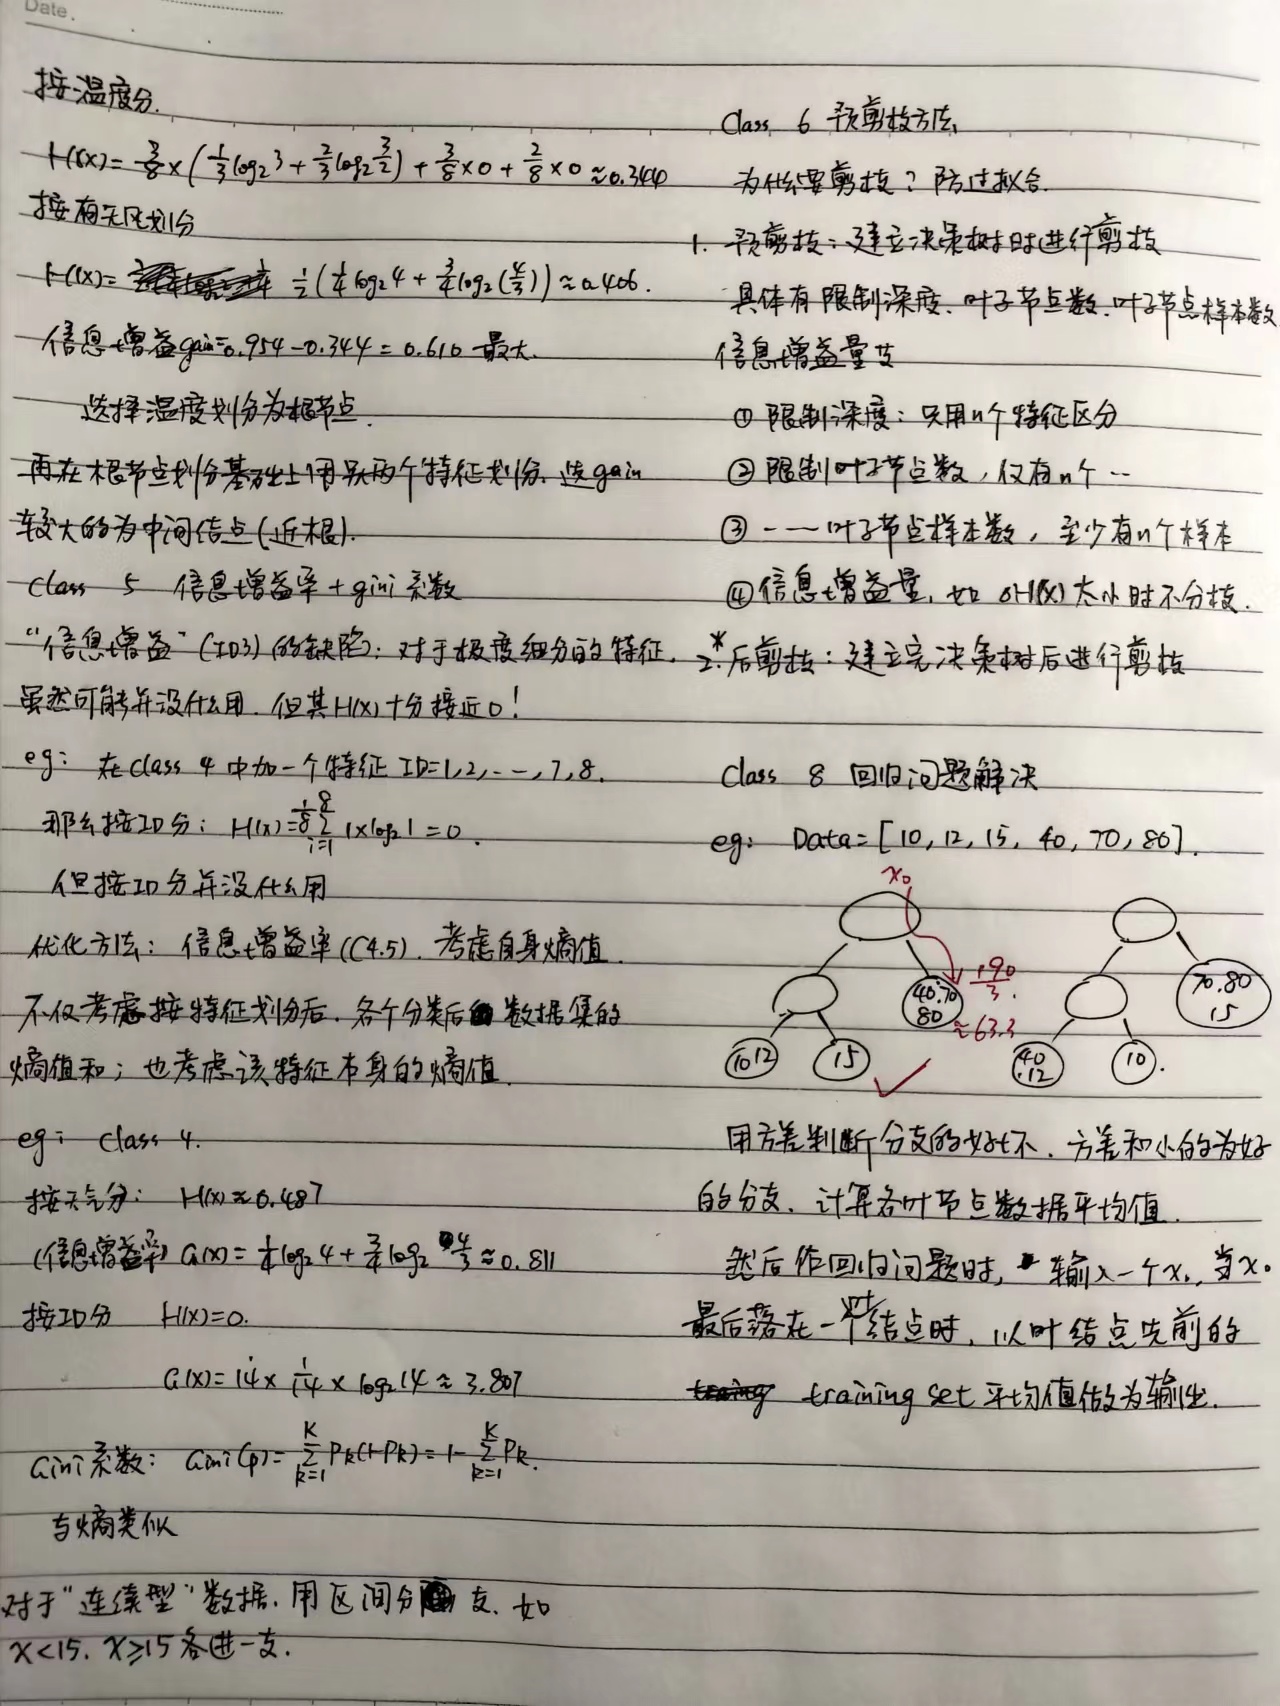 Date.
按温度分.
H(x)= 3/8×(1/3log₂3+2/3log₂3/2)+3/8×0+2/8×0≈0.344
按有无风划分
H(x)= 1/2(1/4log₂4+3/4log₂(4/3))≈0.406.
信息增益gain=0.954-0.344=0.610 最大.
选择温度划分为根节点.
再在根节点划分基础上用另两个特征划分.选gain
较大的为中间结点(近根).
class 5 信息增益率+gini系数
"信息增益"(ID3)的缺陷:对于极度细分的特征.
虽然可能并没什么用.但其H(x)十分接近0!
eg: 在class 4中加一个特征 ID=1,2,--,7,8.
那么按ID分: H(x)=1/8 8∑i=1 1×log₂1=0.
但按ID分并没什么用
优化方法: 信息增益率(C4.5).考虑自身熵值.
不仅考虑按特征划分后.各个分类后数据集的
熵值和;也考虑该特征本身的熵值.
eg: class 4.
按天气分: H(x)≈0.487
(信息增益率) G(x)=1/4log₂4+3/4log₂4/3≈0.811
按ID分 H(x)=0.
G(x)=14×1/14×log₂14≈3.807
Gini系数: Gini(p)=K∑k=1 Pk(1-Pk)=1-K∑k=1 Pk.
与熵类似
对于"连续型"数据.用区间分支.如
x<15. x≥15各进一支.
Class 6 预剪枝方法
为什么要剪枝?防过拟合.
1. 预剪枝:建立决策树时进行剪枝
具体有限制深度.叶子节点数.叶子节点样本数
信息增益量等
① 限制深度:只用n个特征区分
② 限制叶子节点数,仅有n个--
③ -—叶子节点样本数,至少有n个样本
④ 信息增益量,如ΔH(x)太小时不分枝.
*2.后剪枝:建立完决策树后进行剪枝
Class 8 回归问题解决
eg: Data=[10,12,15,40,70,80].
x₀
40.70
80
190/3.
≈63.3
10 12
15
70.80
15
40
.12
10
用方差判断分支的好坏.方差和小的为好
的分支.计算各叶节点数据平均值.
然后作回归问题时,输入一个x₀,当x₀
最后落在一个叶结点时,以叶结点先前的
training set平均值做为输出.